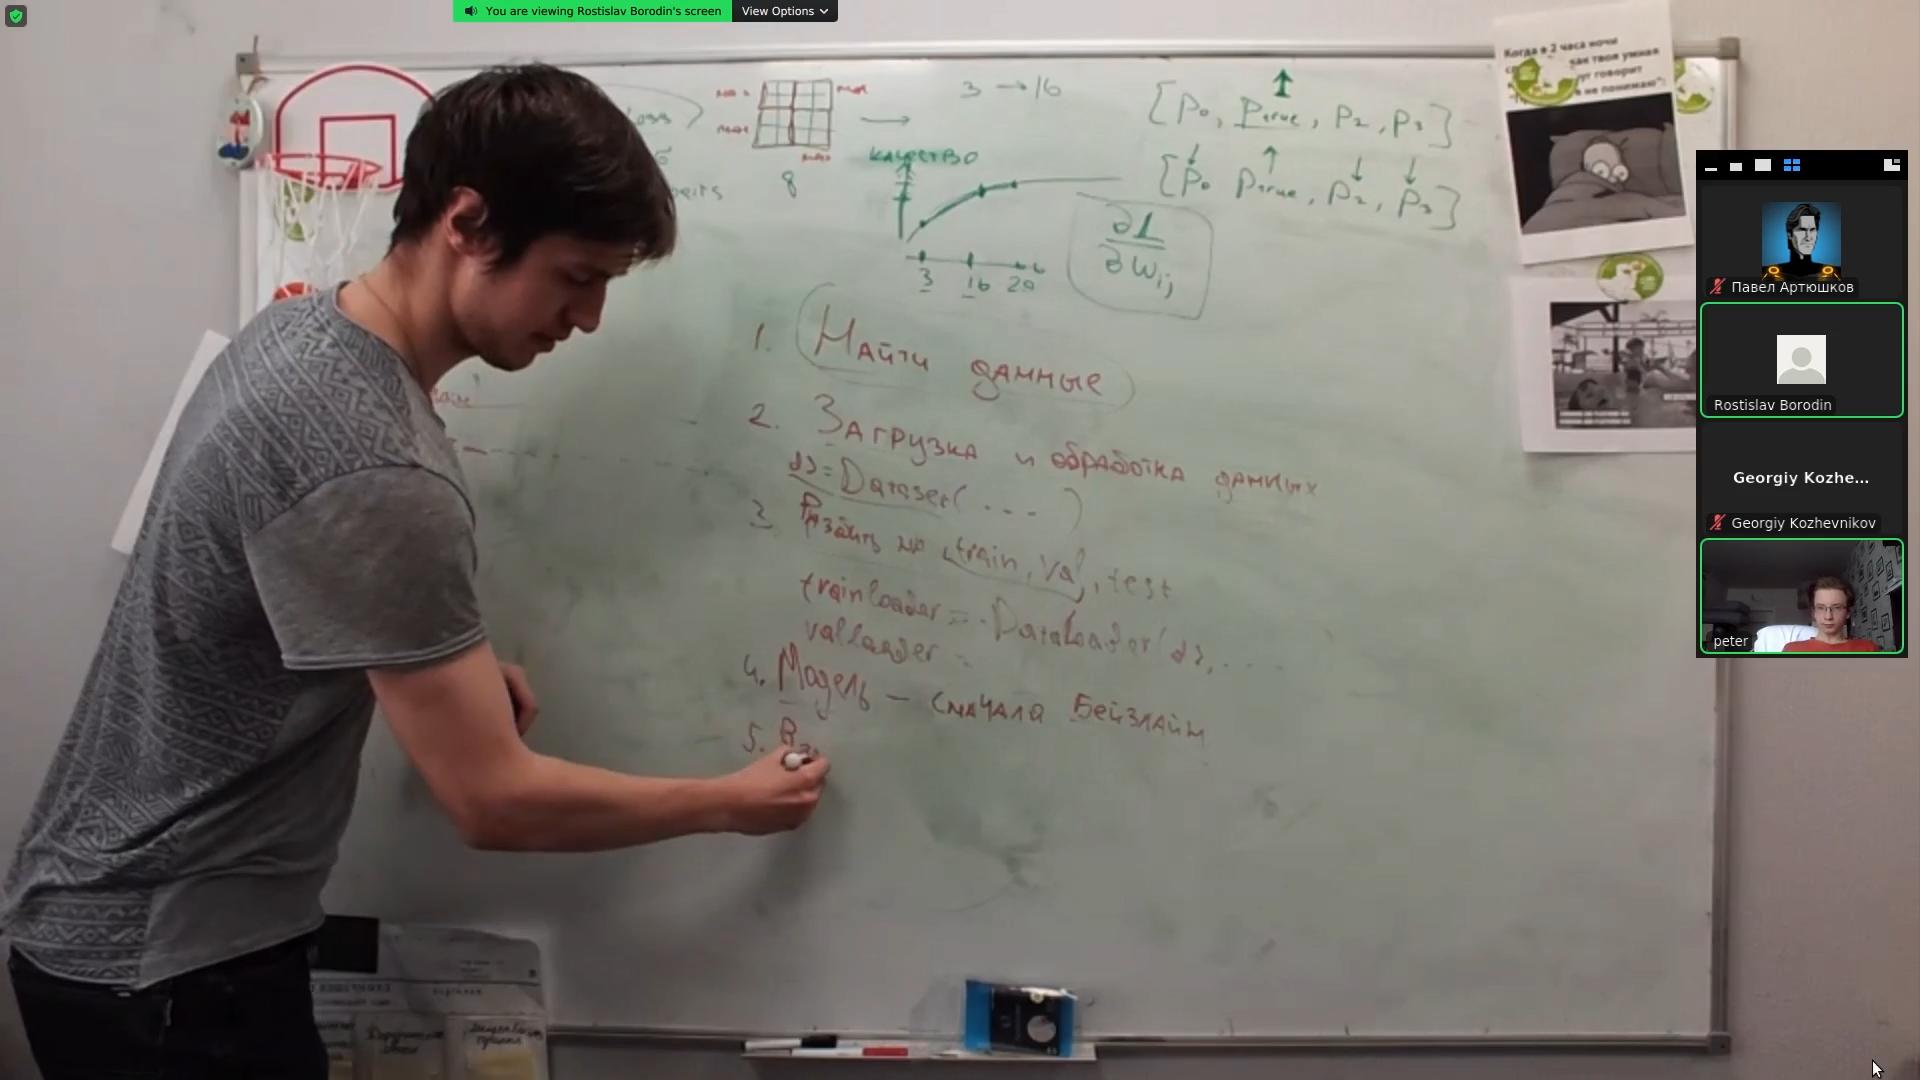 You are viewing Rostislav Borodin's screen
View Options
Loss
max
max
max
8
3 → 16
КАЧЕСТВО
3 16 20
[P0, Ptrue, P2, P3]
[P0 Ptrue, P2, P3]
∂L
∂Wij
1. Найти данные
2. Загрузка и обработка данных
ds = Dataset( ... )
3. Разбить на train, val, test
trainloader = DataLoader(ds, ...
valloader =
4. Модель – сначала Бейзлайн
5. Вз
Когда в 2 часа ночи
как твоя умная
говорит
не понимаю":
Павел Артюшков
Rostislav Borodin
Georgiy Kozhe...
Georgiy Kozhevnikov
peter